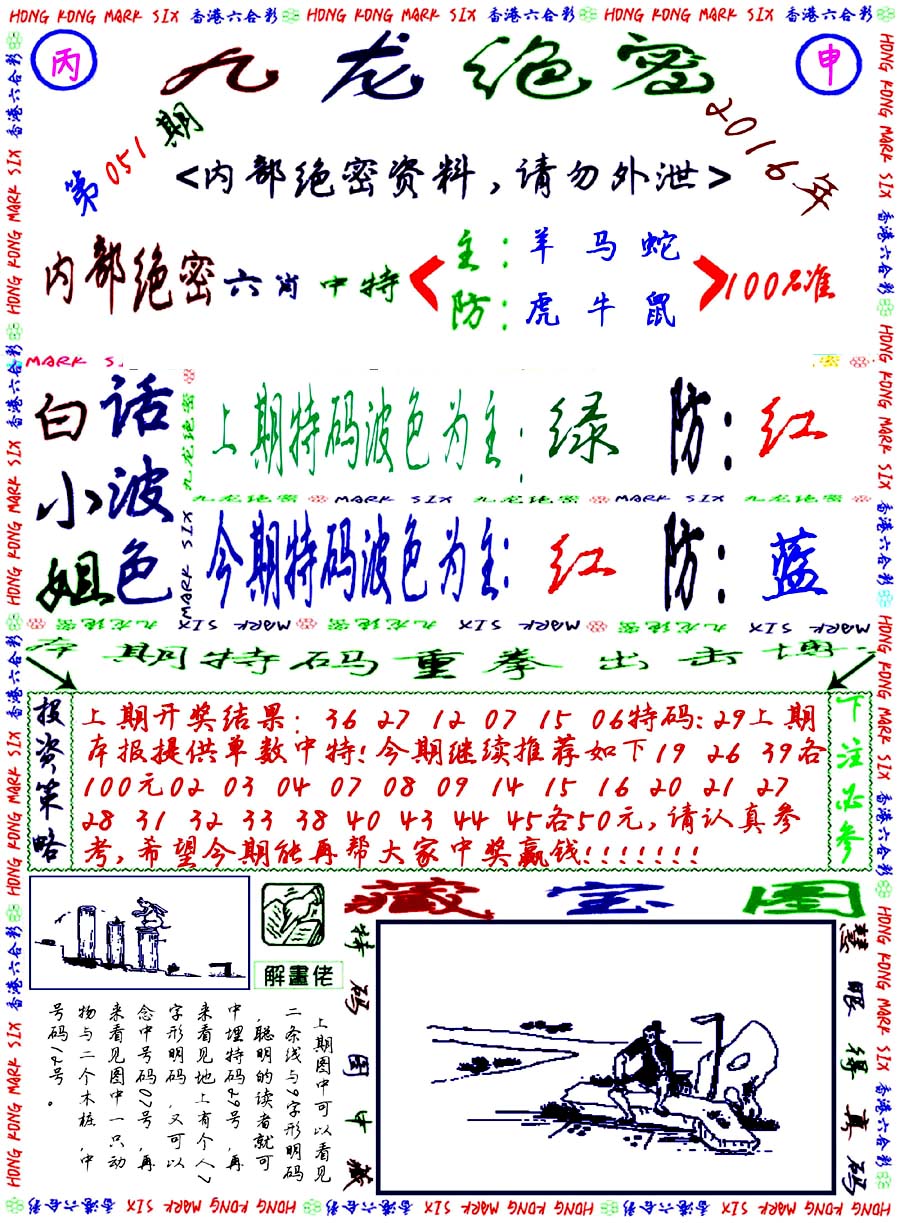 HONG KONG MARK SIX 香港六合彩 HONG KONG MARK SIX 香港六合彩 HONG KONG MARK SIX 香港六合彩
丙
九龙绝密
申
第051期
2016年
<内部绝密资料,请勿外泄>
内部绝密六肖中特
主:羊马蛇
防:虎牛鼠
100%准
MARK S
白小姐
话波色
九龙绝密
MARK SIX
上期特码波色为主:绿 防:红
九龙绝密 MARK SIX 九龙绝密 MARK SIX 九龙绝密
今期特码波色为主:红 防:蓝
九龙绝密 MARK SIX 九龙绝密 MARK SIX 九龙绝密 MARK SIX 九龙绝密 MARK SIX
期特码重拳出击
投资策略
上期开奖结果: 36 27 12 07 15 06特码:29上期
本报提供单数中特!今期继续推荐如下19 26 39各
100元02 03 04 07 08 09 14 15 16 20 21 27
28 31 32 33 38 40 43 44 45各50元,请认真参
考,希望今期能再帮大家中奖赢钱!!!!!!!
下注必参
解畫佬
藏宝图
上期图中可以看见
二条线与9字形明码
,聪明的读者就可
中埋特码29号,再
来看见地上有个人7
字形明码,又可以
念中号码07号,再
来看见图中一只动
物与二个木桩,中
号码12号。
特码图中藏
慧眼得真码
HONG KONG MARK SIX 香港六合彩 HONG KONG MARK SIX 香港六合彩 HONG KONG MARK SIX 香港六合彩